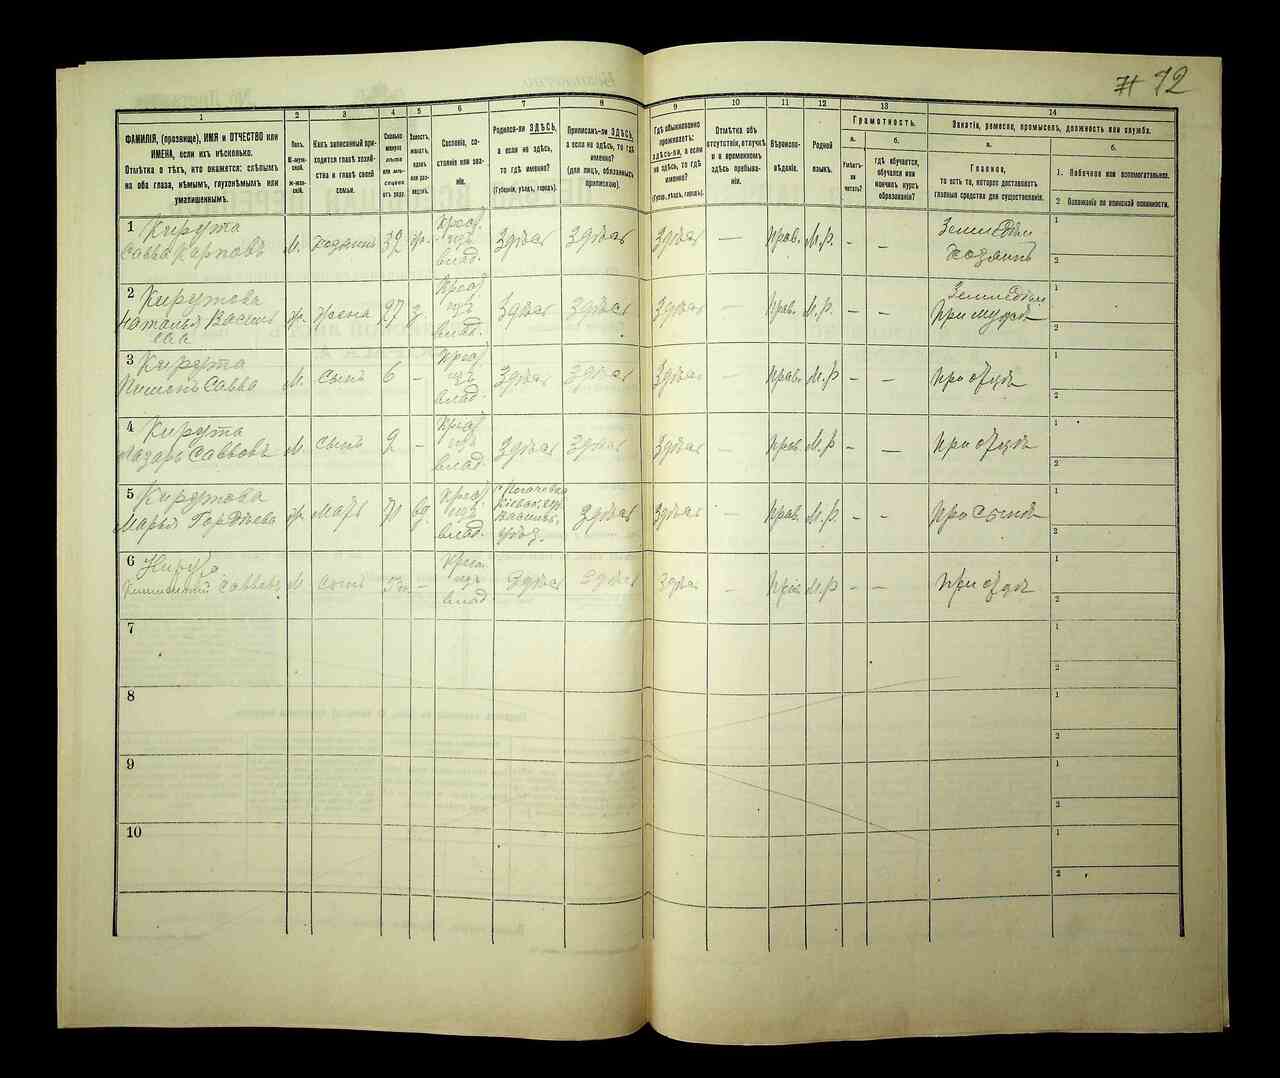 # 12
1 2 3 4 5 6 7 8 9 10 11 12 13 14
ФАМИЛІЯ, (прозвище), ИМЯ и ОТЧЕСТВО или
ИМЕНА, если ихъ нѣсколько.
Отмѣтка о тѣхъ, кто окажется: слѣпымъ
на оба глаза, нѣмымъ, глухонѣмымъ или
умалишеннымъ.
Полъ.
М-муж-
ской.
Ж-жен-
скій.
Какъ записанный при-
ходится главѣ хозяй-
ства и главѣ своей
семьи.
Сколько
минуло
лѣтъ
или мѣ-
сяцевъ
отъ роду.
Холостъ,
женатъ,
вдовъ
или раз-
веденъ.
Сословіе, со-
стояніе или зва-
ніе.
Родился-ли ЗДѢСЬ,
а если не здѣсь,
то гдѣ именно?
(Губернія, уѣздъ, городъ).
Приписанъ-ли ЗДѢСЬ,
а если не здѣсь, то гдѣ
именно?
(для лицъ, обязанныхъ
припискою).
Гдѣ обыкновенно
проживаетъ:
здѣсь-ли, а если
не здѣсь, то гдѣ
именно?
(Губерн., уѣздъ, городъ).
Отмѣтка объ
отсутствіи, отлучкѣ
и о временномъ
здѣсь пребыва-
ніи.
Вѣроиспо-
вѣданіе.
Родной
языкъ.
Грамотность.
а.
Умѣетъ-
ли
читать?
б.
гдѣ обучается,
обучался или
кончилъ курсъ
образованія?
Занятіе, ремесло, промыселъ, должность или служба.
а.
Главное,
то есть то, которое доставляетъ
главныя средства для существованія.
б.
1. Побочное или вспомогательное.
2. Положеніе по воинской повинности.
1 Кирута
Савва Карповъ М. хозяинъ 39 ж. Крест. изъ влад. Здѣсь Здѣсь Здѣсь — Прав. М.р. - - Земледѣл. хозяинъ 1 2
2 Кирутова
Наталья Василь
ева ж. жена 27 з. Крест. изъ влад. Здѣсь Здѣсь Здѣсь — Прав. М.р. - - Земледѣл. при мужѣ 1 2
3 Кирута
Савва М. сынъ 6 - Крест. изъ влад. Здѣсь Здѣсь Здѣсь — Прав. М.р - - при отцѣ 1 2
4 Кирута
Лазарь Саввовъ М. сынъ 2 - Крест. изъ влад. Здѣсь Здѣсь Здѣсь — Прав. М.р - - при отцѣ 1 2
5 Кирутова
Марья Гордѣева ж. мать 71 вд. Крест. изъ влад. Кіевск. губ. Васильк. уѣзд. Здѣсь Здѣсь — Прав. М.р. - - при сынѣ 1 2
6 Саввовъ М сынъ - Крест. изъ влад Здѣсь Здѣсь Здѣсь - Прав М.р - - при отцѣ 1 2
7 1 2
8 1 2
9 1 2
10 1 2